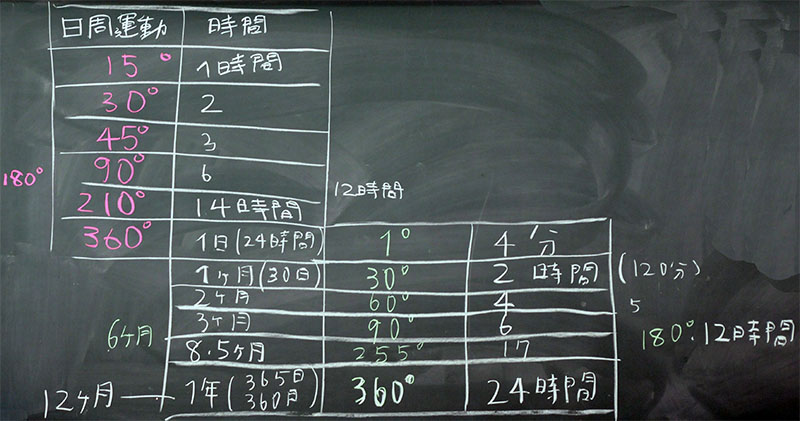 日周運動 時間
15° 1時間
30° 2
45° 3
90° 6
180° 12時間
210° 14時間
360° 1日(24時間) 1° 4分
1ヶ月(30日) 30° 2時間 (120分)
2ヶ月 60° 4
5
3ヶ月 90° 6
6ヶ月 180°:12時間
8.5ヶ月 255° 17
12ヶ月 1年(365日 360° 24時間
360日